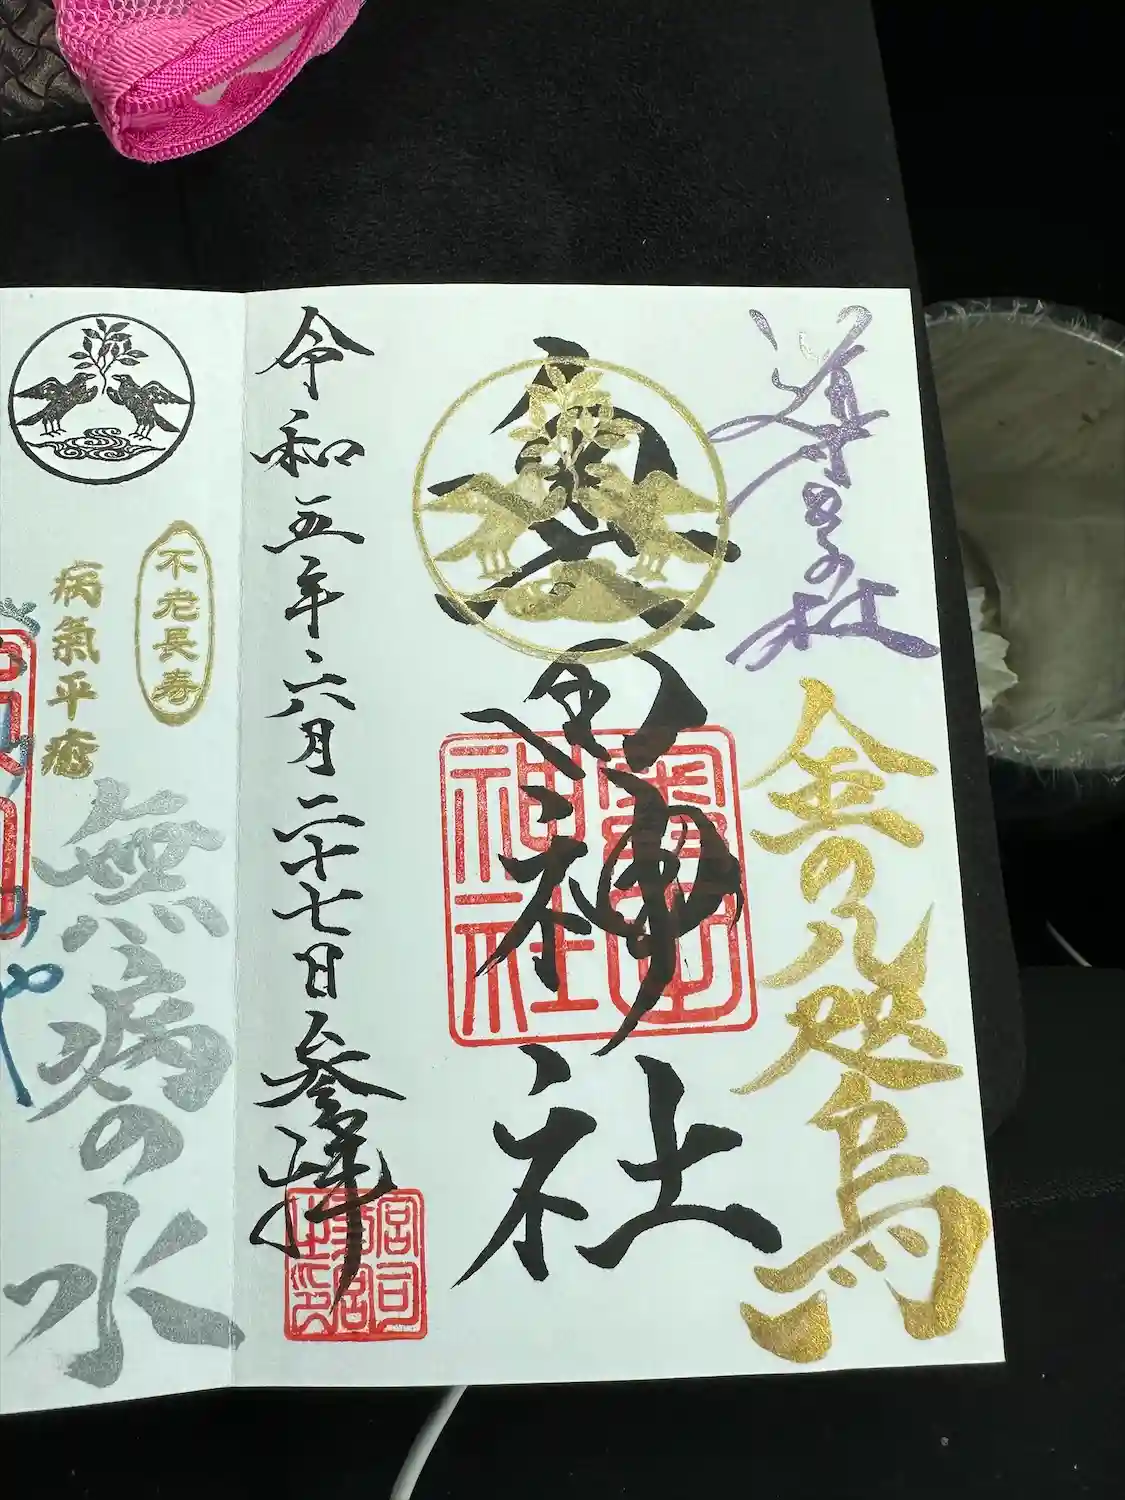 導きの社
金の八咫烏
神社
神社
令和五年六月二十七日参拝
宮司
之印
不老長寿
病氣平癒
無病の水